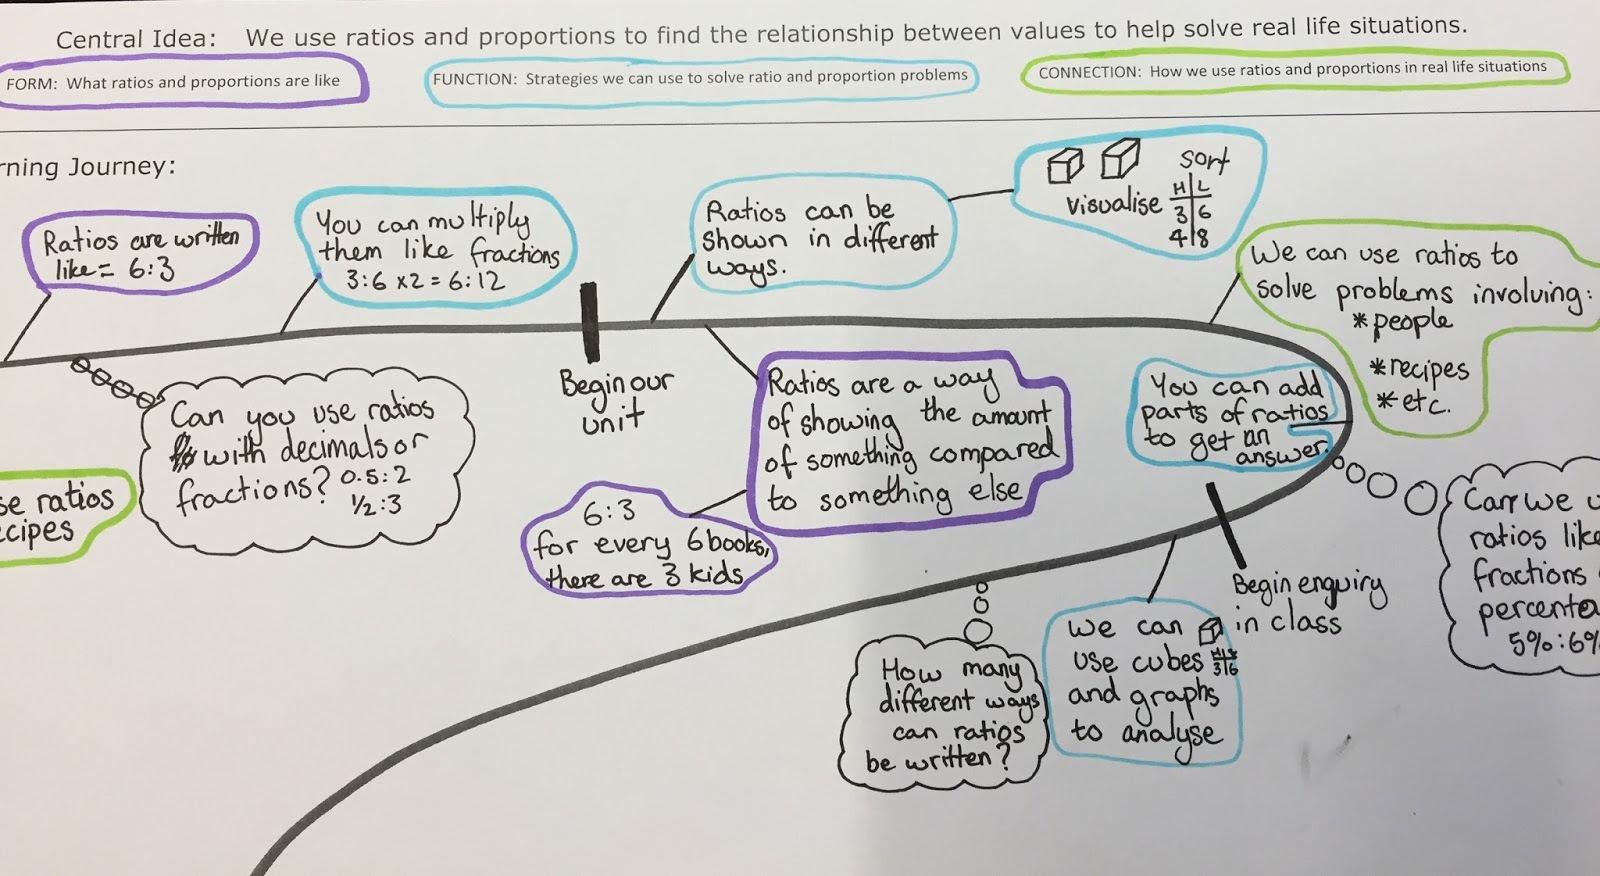 Central Idea: We use ratios and proportions to find the relationship between values to help solve real life situations.
FORM: What ratios and proportions are like
FUNCTION: Strategies we can use to solve ratio and proportion problems
CONNECTION: How we use ratios and proportions in real life situations
rning Journey:
Ratios are written
like= 6:3
You can multiply
them like fractions
3:6 x2 = 6:12
Ratios can be
shown in different
ways.
sort
visualise
H L
3 6
4 8
We can use ratios to
solve problems involving:
*people
*recipes
*etc.
Can you use ratios
with decimals or
fractions? 0.5:2
1/2:3
Begin our
unit
Ratios are a way
of showing the amount
of something compared
to something else
6:3
for every 6 books,
there are 3 kids
You can add
parts of ratios
to get an
answer.
se ratios
ecipes
Begin enquiry
in class
We can
use cubes
3 6
and graphs
to analyse
How many
different ways
can ratios
be written?
Can we u
ratios like
fractions
percenta
5%:6%